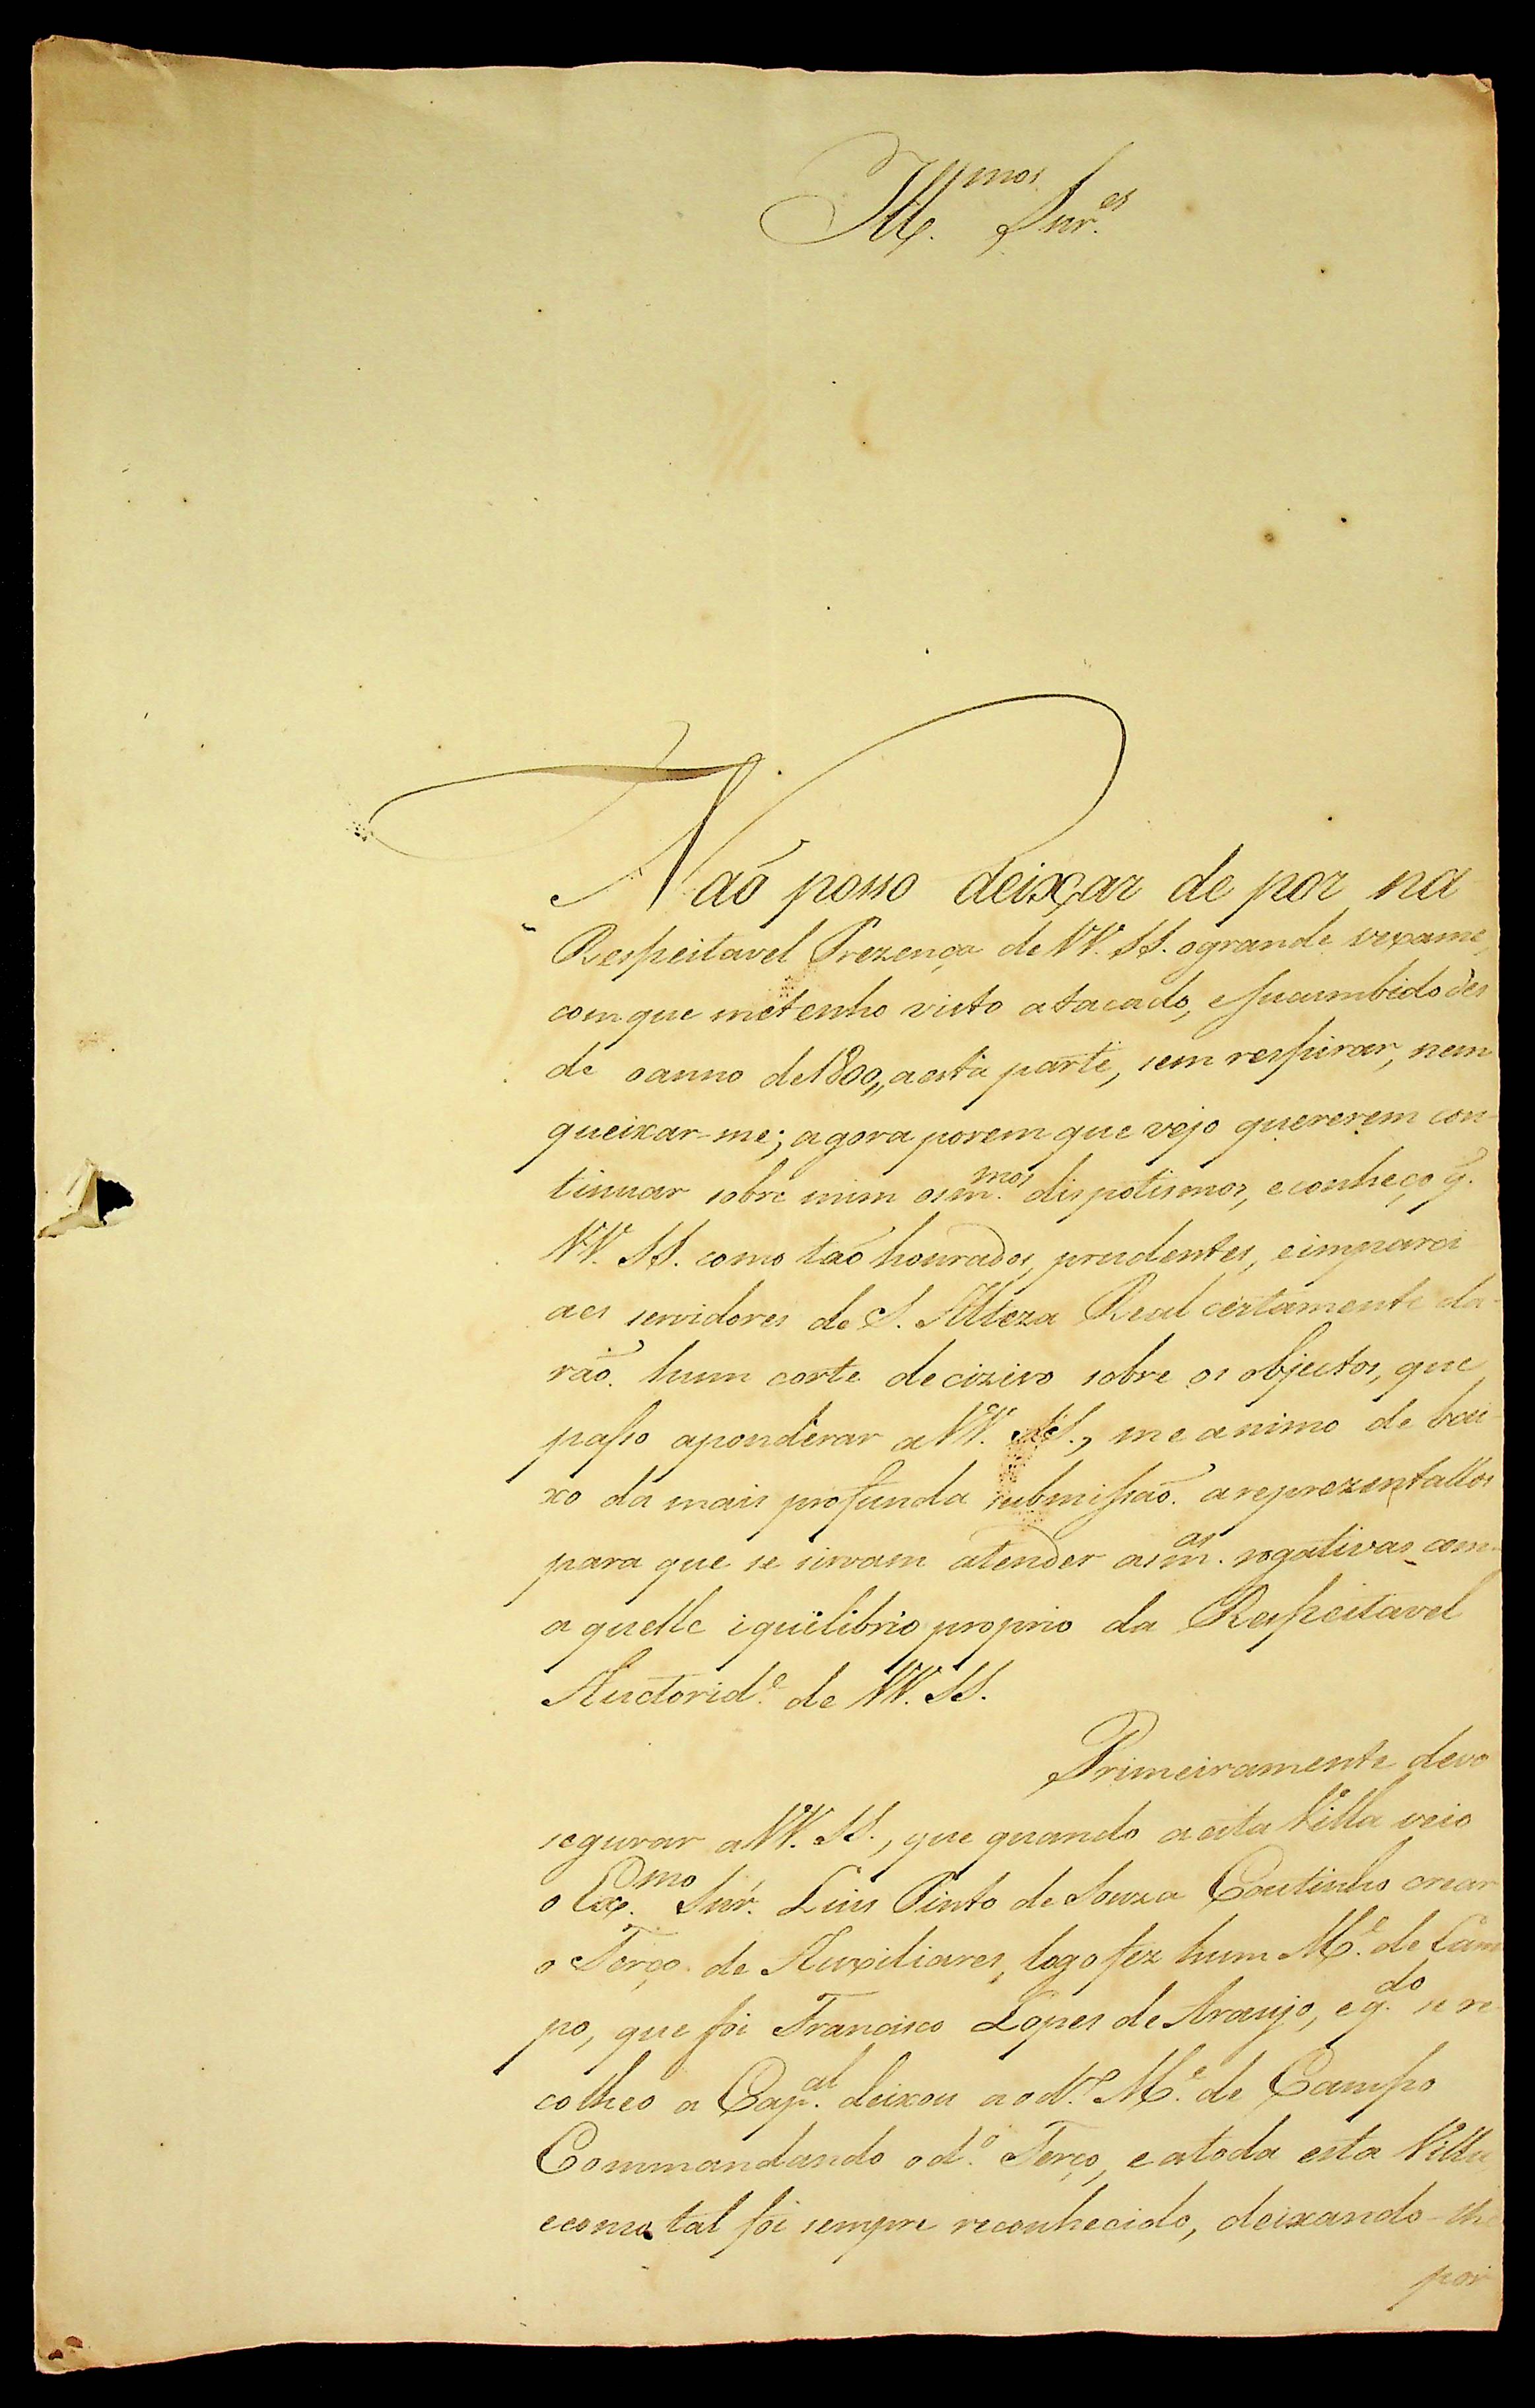 Ill.mos Snr.es
Naõ posso deixar de por na
Respeitavel Prezença de VV. SS. ogrande vexame,
comque metenho visto atacado, esucumbido des
de oanno de1800,, aesta parte, sem respirar, nem
queixar-me; agora porem que vejo quererem con-
tinuar sobre mim osm.mos dispotismos, econheço q̃.
VV. SS. como taõ honrados, prudentes, eimparci
aes servidores de S. Alteza Real certamente da-
raõ hum corte decizivo sobre os objectos, que
passo aponderar aVV. SS., me animo de bai-
xo da mais profunda submissaõ areprezentallos
para que se sirvam atender asm.as rogativas com-
aquelle iquilibrio proprio da Respeitavel
Auctorid.e de VV. SS.
Primeiramente devo
segurar aVV. SS., que quando aesta Villa veio
o Ex.mo Snr. Luis Pinto de Souza Coutinho crear
o Terço de Auxiliares, logofez hum M.e de Cam
po, que foi Francisco Lopes de Araujo, eq.do se re-
colheo a Cap.al deixou aod.o M.e de Campo
Commandando od.o Terço, eatoda esta Villa,
ecomo tal foi sempre reconhecido, deixando-lhe
por